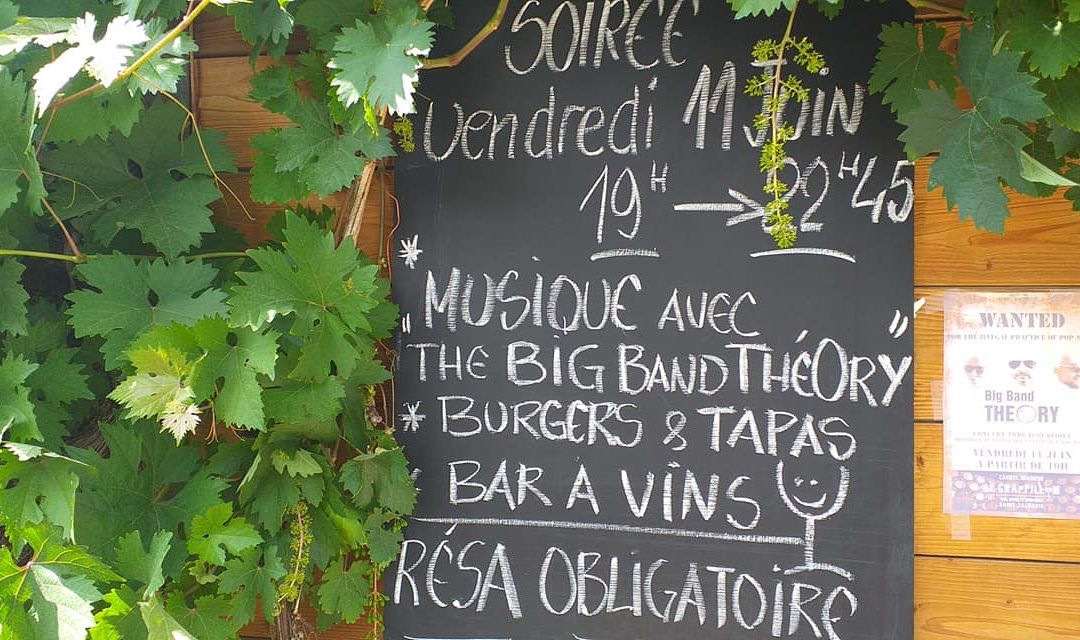 SOIRÉE
Vendredi 11 JUIN
19H → 22H45
* MUSIQUE AVEC
"THE BIG BAND THÉORY"
* BURGERS & TAPAS
BAR A VINS
RÉSA OBLIGATOIRE
WANTED
FOR THE ILLEGAL PRACTICE OF POP
Big Band
THEORY
VENDREDI 11 JUIN
A PARTIR DE 19H